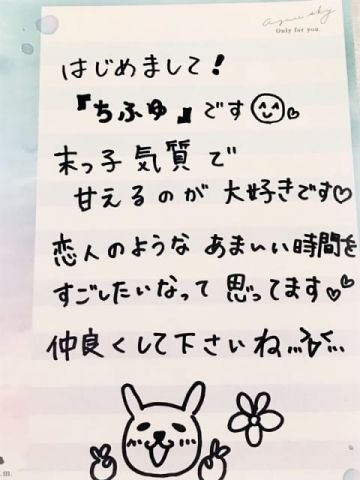 Only for you
はじめまして!
『ちふゆ』です
末っ子気質で
甘えるのが大好きです♡
恋人のようなあまいい時間を
すごしたいなって思ってます♡♡
仲良くして下さいね
m.